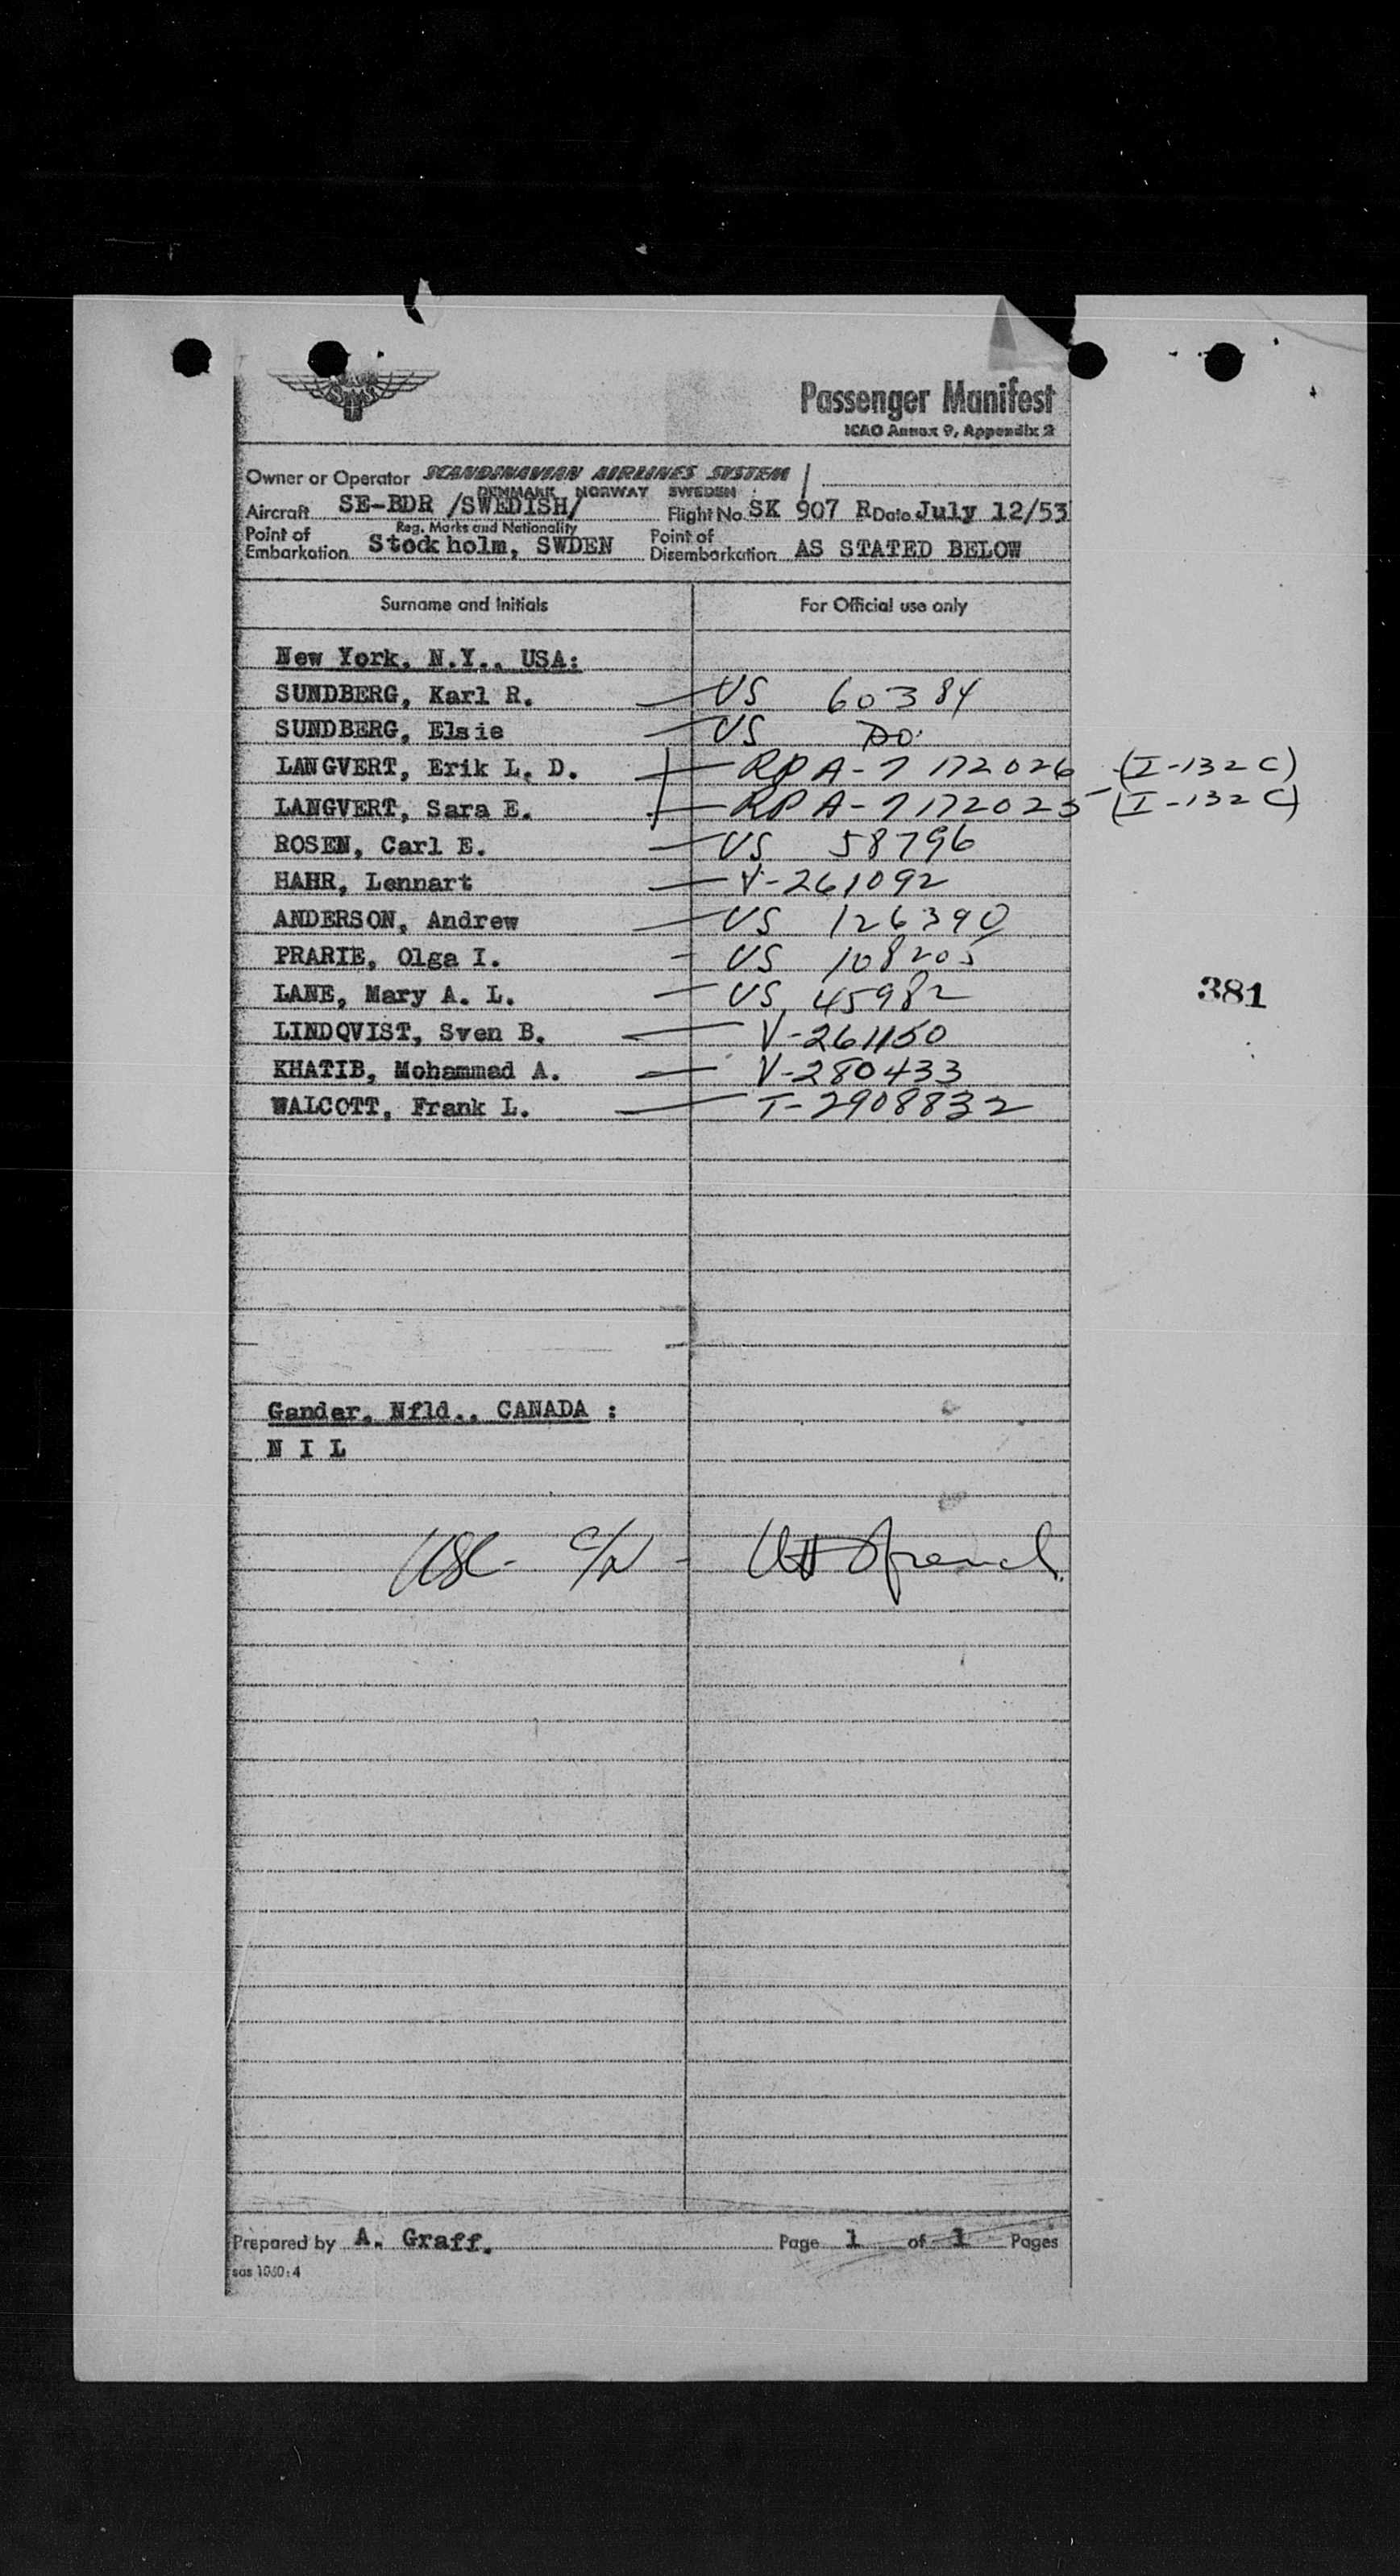 Passenger Manifest
ICAO Annex 9, Appendix 2
Owner or Operator SCANDINAVIAN AIRLINES SYSTEM
DENMARK NORWAY SWEDEN
Aircraft SE-BDR /SWEDISH/ Flight No. SK 907 R Date July 12/53
Reg. Marks and Nationality
Point of Embarkation Stockholm, SWDEN Point of Disembarkation AS STATED BELOW
Surname and Initials For Official use only
New York, N.Y., USA:
SUNDBERG, Karl R. US 60384
SUNDBERG, Elsie US DO.
LANGVERT, Erik L. D. RP A-7172026 (I-132C)
LANGVERT, Sara E. RP A-7172025 (I-132C)
ROSEN, Carl E. US 58796
HAHR, Lennart V-261092
ANDERSON, Andrew US 126390
PRARIE, Olga I. US 108205
LANE, Mary A. L. US 45982
381
LINDQVIST, Sven B. V-261150
KHATIB, Mohammad A. V-280433
WALCOTT, Frank L. T-2908832
Gander, Nfld., CANADA :
N I L
Prepared by A. Graff. Page 1 of 1 Pages
sas 1060:4